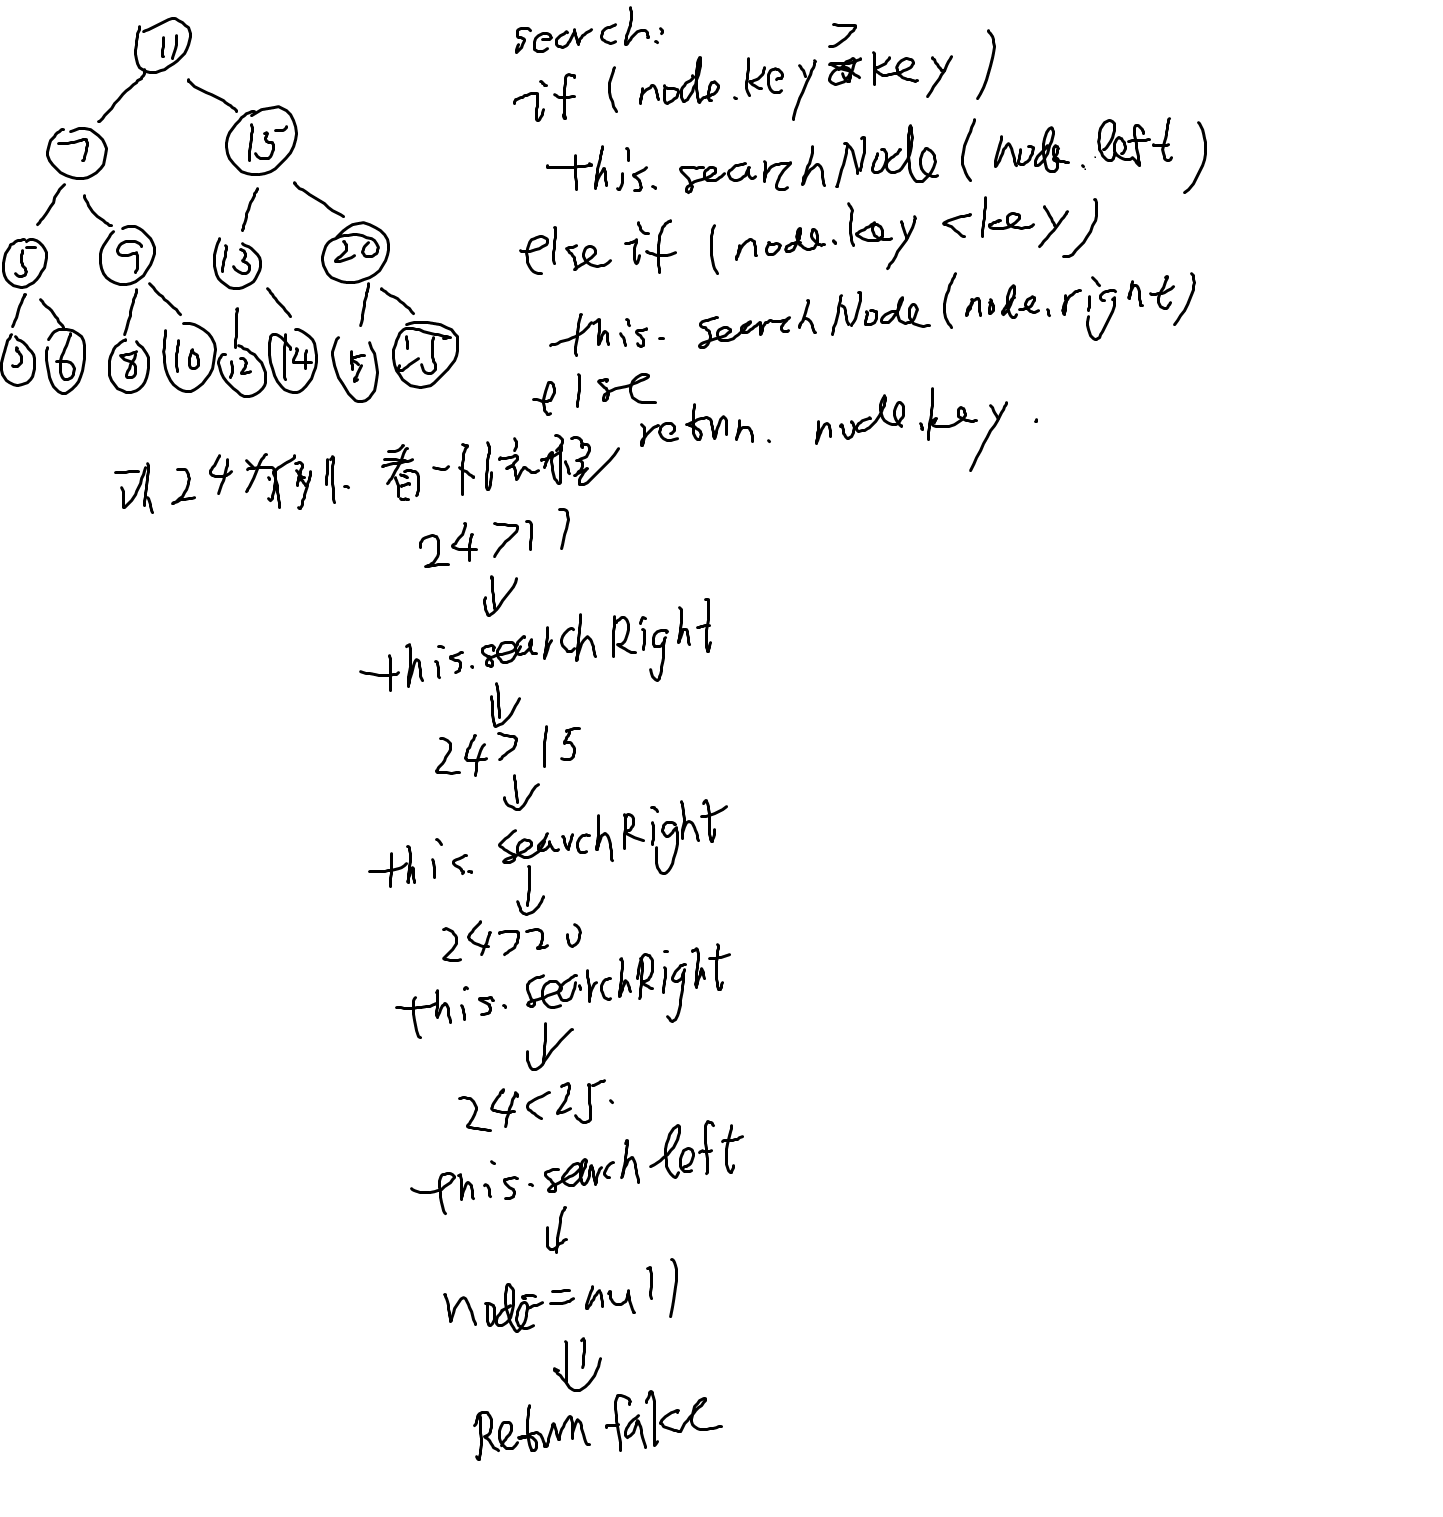 11
7 15
5 9 13 20
3 6 8 10 12 14 25
search:
if (node.key > key)
this.searchNode(node.left)
else if (node.key < key)
this.searchNode(node.right)
else
return. node.key.
以24为例. 看一下流程
24 > 11
this.searchRight
24 > 15
this.searchRight
24 > 20
this.searchRight
24 < 25.
this.searchleft
node = null
Return false